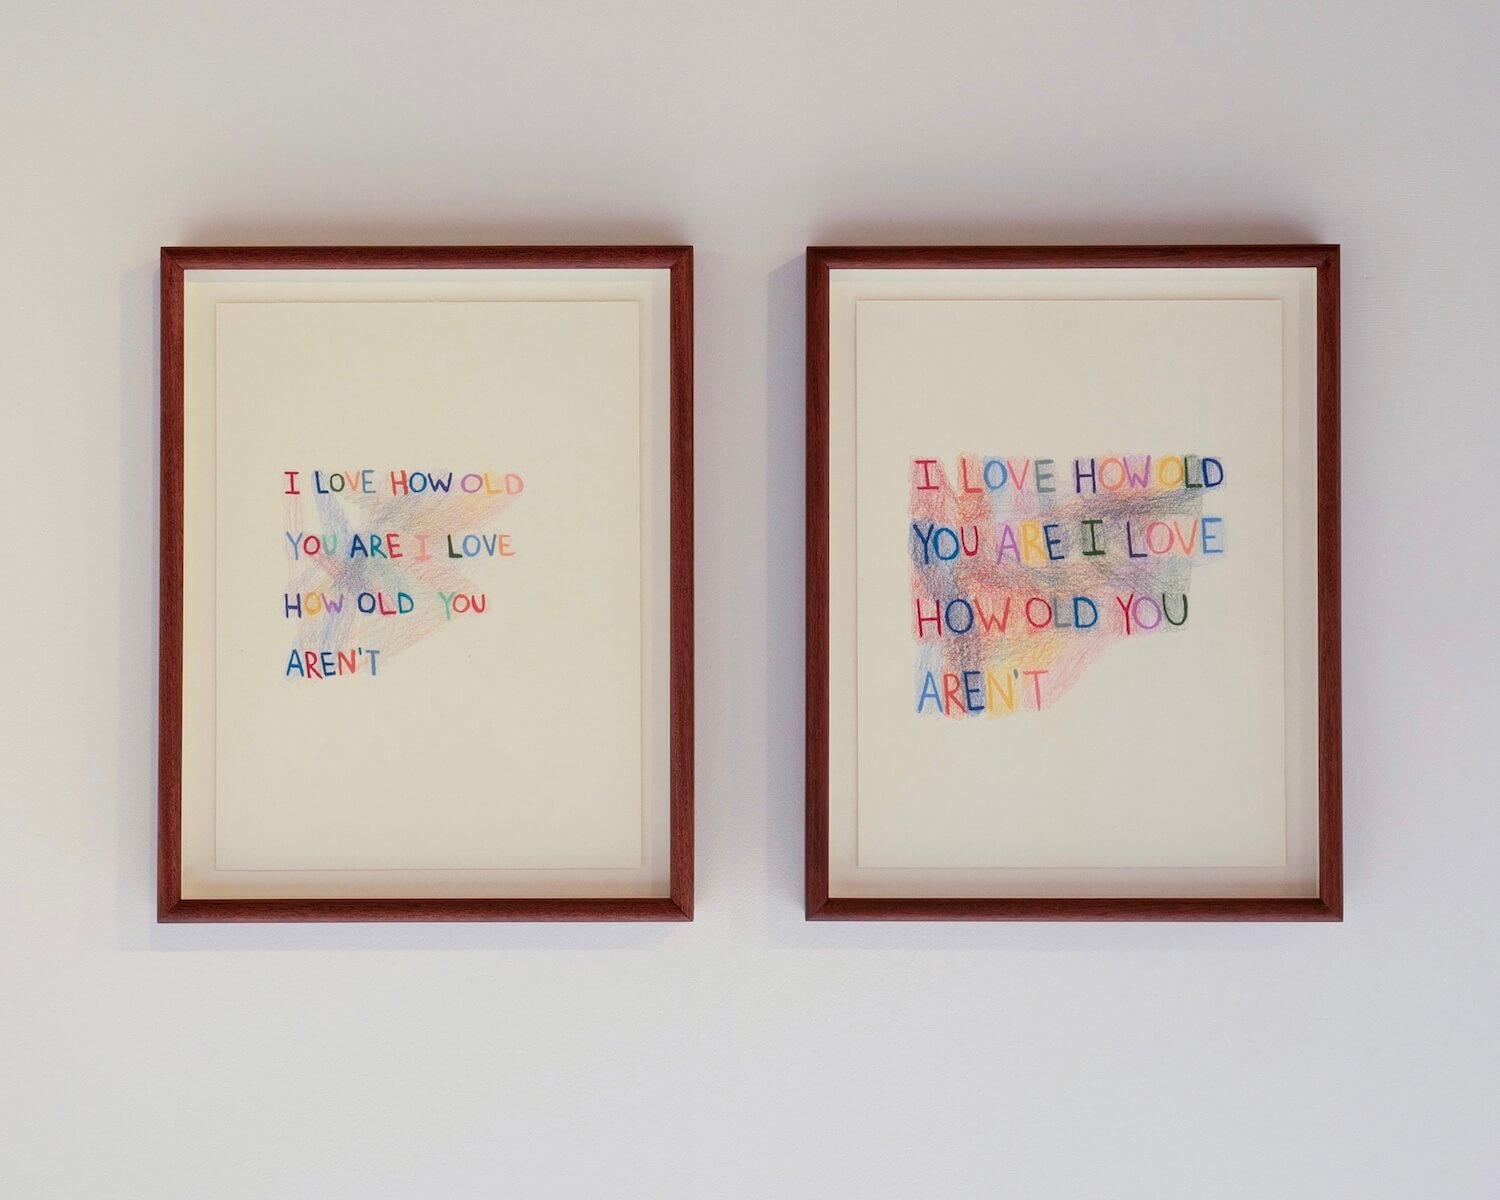 I LOVE HOW OLD
YOU ARE I LOVE
HOW OLD YOU
AREN'T
I LOVE HOW OLD
YOU ARE I LOVE
HOW OLD YOU
AREN'T